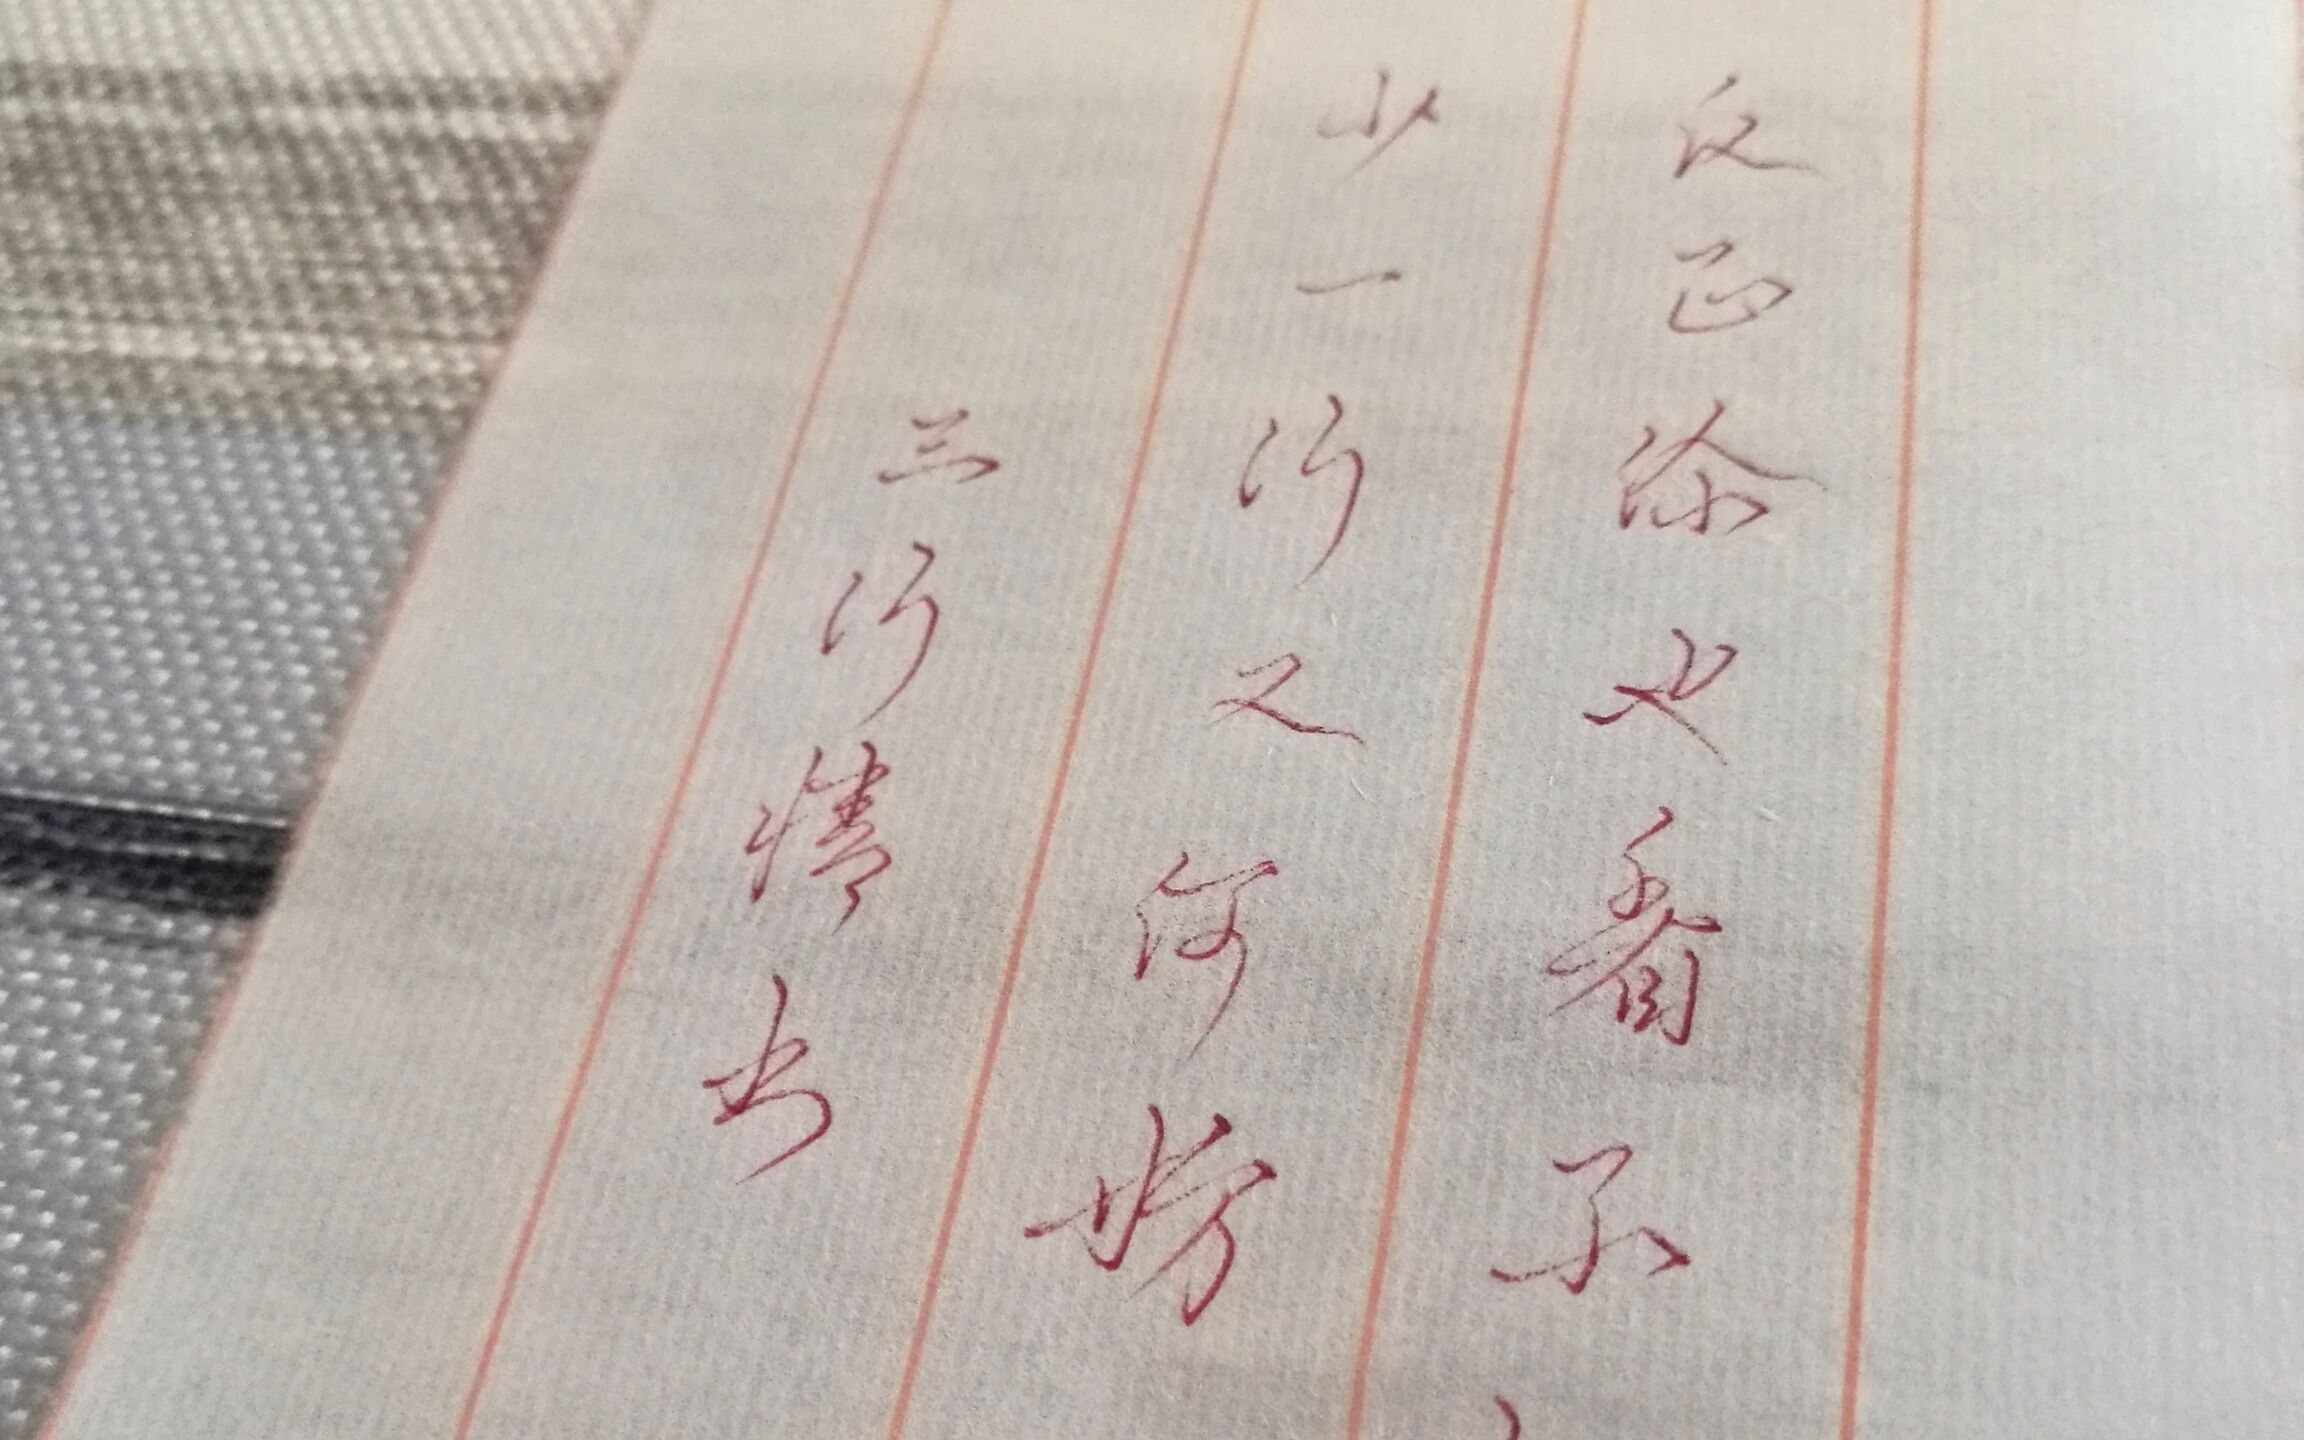 反正你也看不
少一行又何妨
三行情书